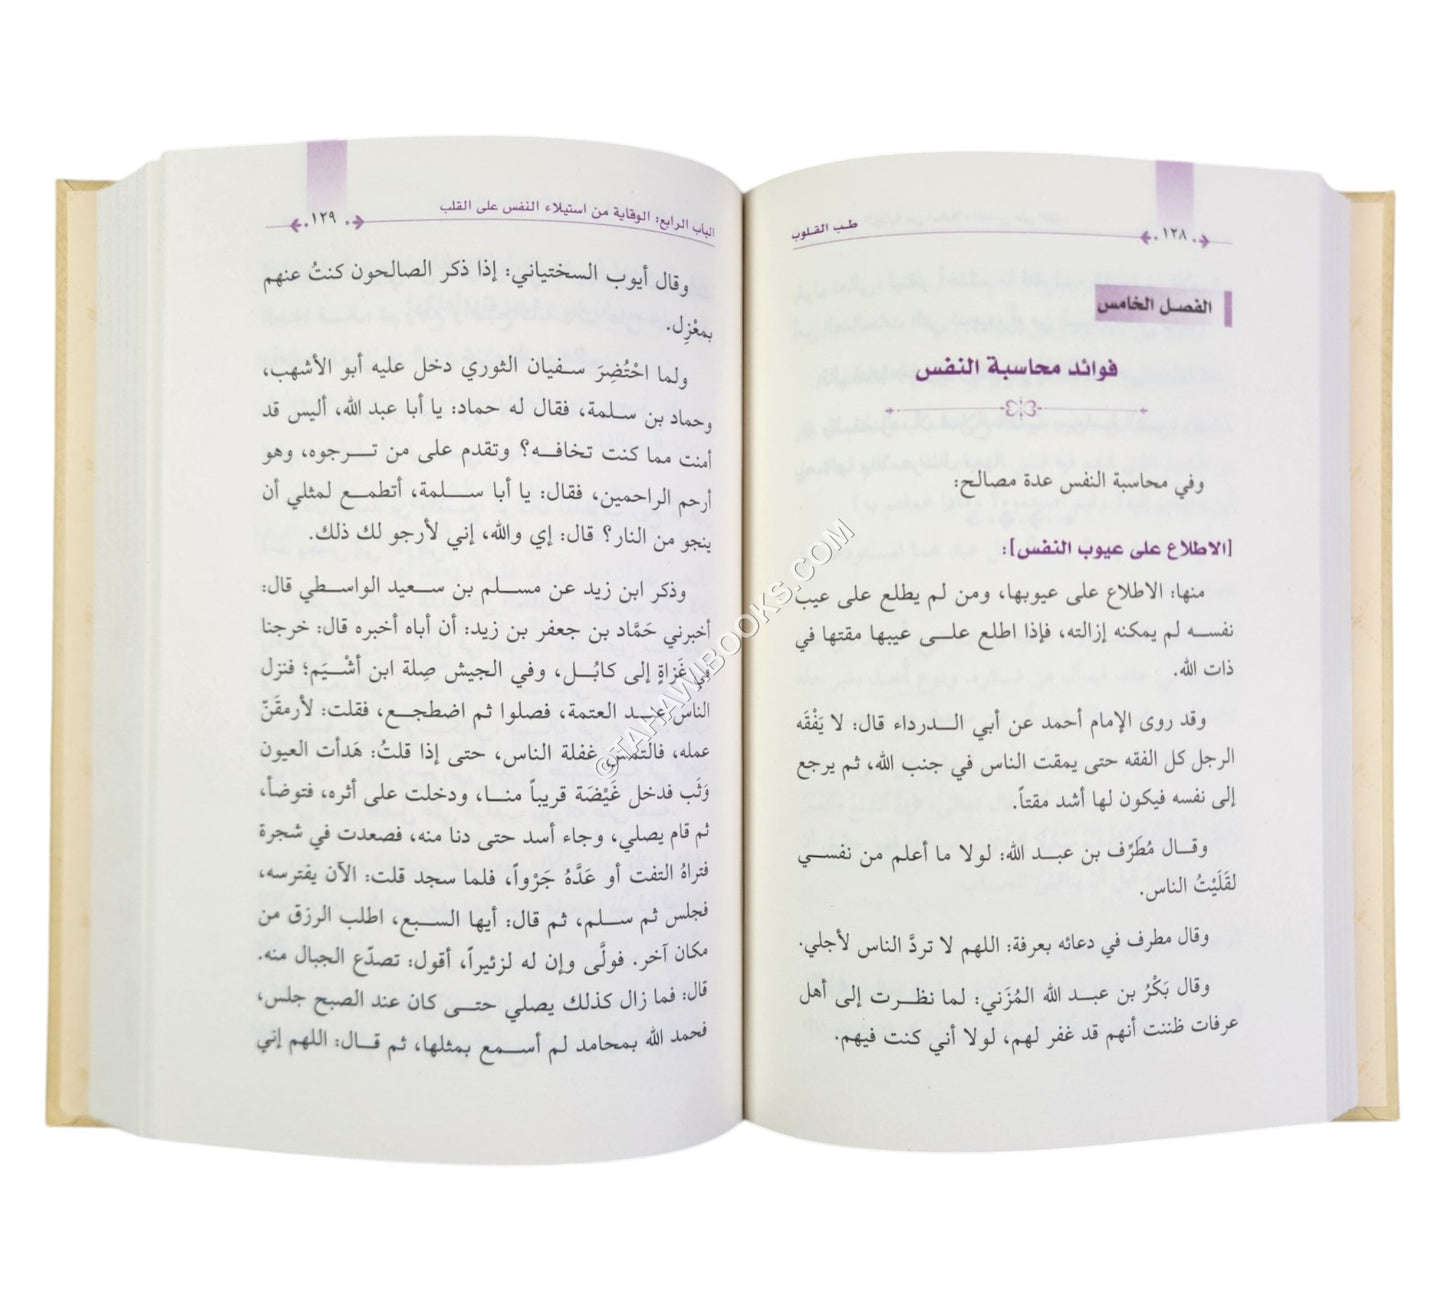 ١٢٨
طب القلوب
الفصل الخامس
فوائد محاسبة النفس
وفي محاسبة النفس عدة مصالح:
[الاطلاع على عيوب النفس]:
منها: الاطلاع على عيوبها، ومن لم يطلع على عيب
نفسه لم يمكنه إزالته، فإذا اطلع على عيبها مقتها في
ذات الله.
وقد روى الإمام أحمد عن أبي الدرداء قال: لا يَفْقَه
الرجل كل الفقه حتى يمقت الناس في جنب الله، ثم يرجع
إلى نفسه فيكون لها أشد مقتاً.
وقال مُطَرِّف بن عبد الله: لولا ما أعلم من نفسي
لقَلَيْتُ الناس.
وقال مطرف في دعائه بعرفة: اللهم لا تردَّ الناس لأجلي.
وقال بَكْرُ بن عبد الله المُزَني: لما نظرت إلى أهل
عرفات ظننت أنهم قد غفر لهم، لولا أني كنت فيهم.
الباب الرابع: الوقاية من استيلاء النفس على القلب
١٢٩
وقال أيوب السختياني: إذا ذكر الصالحون كنتُ عنهم
بمعْزِل.
ولما احْتُضِرَ سفيان الثوري دخل عليه أبو الأشهب،
وحماد بن سلمة، فقال له حماد: يا أبا عبد الله، أليس قد
أمنت مما كنت تخافه؟ وتقدم على من ترجوه، وهو
أرحم الراحمين، فقال: يا أبا سلمة، أتطمع لمثلي أن
ينجو من النار؟ قال: إي والله، إني لأرجو لك ذلك.
وذكر ابن زيد عن مسلم بن سعيد الواسطي قال:
أخبرني حَمَّاد بن جعفر بن زيد: أن أباه أخبره قال: خرجنا
في غَزاةٍ إلى كابُل، وفي الجيش صِلة ابن أشْيَم؛ فنزل
الناس عند العتمة، فصلوا ثم اضطجع، فقلت: لأرمقَنّ
عمله، فالتمس غفلة الناس، حتى إذا قلتُ: هَدأت العيون
وَثَب فدخل غَيْضَة قريباً منا، ودخلت على أثره، فتوضأ،
ثم قام يصلي، وجاء أسد حتى دنا منه، فصعدت في شجرة
فتراهُ التفت أو عَدَّهُ جَرْواً، فلما سجد قلت: الآن يفترسه،
فجلس ثم سلم، ثم قال: أيها السبع، اطلب الرزق من
مكان آخر. فولَّى وإن له لزئيراً، أقول: تصدّع الجبال منه.
قال: فما زال كذلك يصلي حتى كان عند الصبح جلس،
فحمد الله بمحامد لم أسمع بمثلها، ثم قال: اللهم إني
©TAHAWIBOOKS.COM